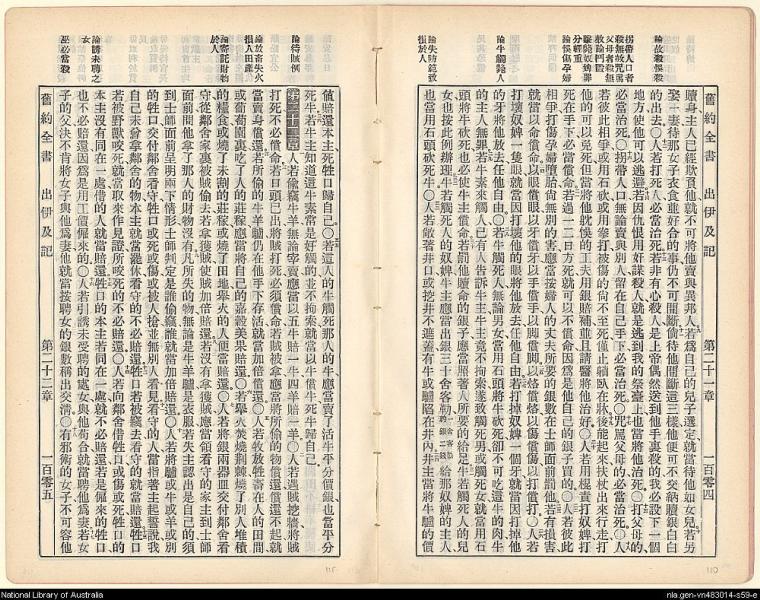 舊約全書 出伊及記 第二十一章 一百零四
論故殺誤殺
拐帶人口者
論牛觸人
贖身主人已經欺負他就不可將他賣與異邦人若為自己的兒子選定就當待他如女兒若另
娶一妻待那女子衣食並好合的事仍不可間斷倘待他間斷這三樣他便可不交納贖銀白白
的出去〇人若打死人必當治死若非有心殺人是上帝偶然送到他手裏殺的我必設下一個
地方使他可以逃避若因仇恨用奸謀殺人就是逃到我的祭臺上也當將他治死〇打父母的
必當治死〇拐帶人口無論賣與別人留在自己手下必當治死〇咒罵父母的必當治死〇人
若彼此相爭或用石砍或用拳打被傷的尚不至死僅止躺臥在牀後能起來扶杖出來行走打
他的可以免死但當將他耽悞的工夫用銀賠補並且請醫將他治好〇人若用棍責打奴婢打
死在手下必當償命若過一二日方死就可以不償命因為是他自己的銀子買的〇人若彼此
相爭打傷孕婦墮胎尚無別的害應當按婦人的丈夫所要的銀數在士師面前罰他若有損害
就當以命償命以眼償眼以牙償牙以手償手以脚償脚以烙償烙以傷償傷以打償打〇人若
打壞奴婢一隻眼就當因打壞他的眼將他放去任他自由若打掉奴婢一個牙就當因打掉他
的牙將他放去任他自由〇若牛觸死人無論男女當用石頭將牛砍死卻不可吃這牛的肉牛
的主人無罪若牛素來觸人已有人告訴牛主牛主竟不拘索遂致觸死男或觸死女就當用石
頭將牛砍死也必使牛主償命若罰他贖命的銀子應當照著人所要的給足牛若觸死人的兒
女也按此例辦理牛若觸死人的奴婢牛主應當出銀三十舍客勒給那奴婢的主人
也當用石頭砍死牛〇人若敞著井口或挖井不遮蓋有牛或驢陷在井內井主當將牛驢的價
舊約全書 出伊及記 第二十二章 一百零五
論待賊例
論放畜失火損人田產
論寄託財物於人
論誘未聘之女
巫必當殺
值賠還本主死牲口歸自己〇若這人的牛觸死那人的牛應當賣了活牛平分價銀也當平分
死牛若牛主知道這牛素常是好觸的並不拘索就當以牛償牛死牛歸自己
第二十二章 人若偷竊牛羊無論宰賣應當以五牛賠一牛四羊賠一羊〇人若遇賊挖牆將賊
打死不必償命若日頭已出將賊打死必須償命若賊被拿應當將所偷的物償還償還不起就
當賣身償還若所偷的牛羊驢仍在他手下存活就當加倍償還〇人若牧放牲畜在人的田間
或葡萄園裏吃了人的莊稼應當將自己的嘉穀美果賠還〇若舉火焚燒荊棘燒了別人堆積
的糧食或燒了未割的莊稼或燒了田地舉火的人便當賠還〇人若將銀兩器皿交付鄰舍看
守從鄰舍家裏被賊偷去若拿獲賊使賊加倍賠還若沒有拿獲賊應當領看守的家主到士師
面前問他拿了那人的財物沒有凡所失的物無論是牛羊驢是衣服若失主認出是自己的須
到士師面前呈明兩下情形士師判定是誰偷竊誰就當加倍賠還〇人若將驢或牛或羊或別
的牲口交付鄰舍看守牲口或死或傷或被人搶並無別人看見看守的人當指著主起誓說我
自己未曾拿鄰舍的物本主就當罷休看守的不必賠還牲口若被竊去看守的就當賠還牲口
若被野獸咬死就當取來作見證所咬死的不必賠還〇人若向鄰舍借牲口或傷或死牲口的
本主沒有同在一處借的人就當賠還牲口的本主若同在一處就不必賠還若是僱來的牲口
也不必賠還因為是用工價僱來的〇人若引誘未受聘的處女與他苟合就當聘他為妻若女
子的父決不肯將女子與他為妻他就當按聘女的銀數稱出交清〇有邪術的女子不可容他
National Library of Australia
nla.gen-vn483014-s59-e